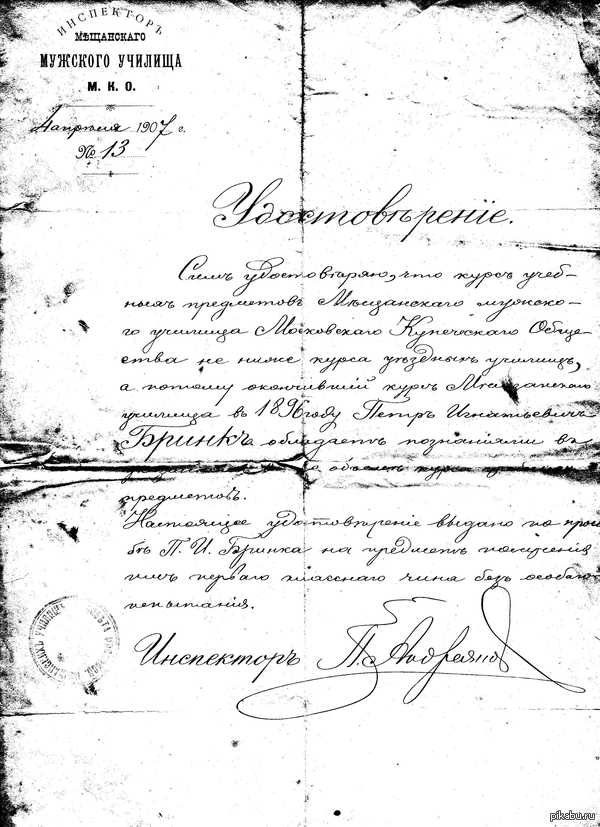 ИНСПЕКТОРЪ
МѢЩАНСКАГО
МУЖСКОГО УЧИЛИЩА
М. К. О.
4 апрѣля 1907 г.
№ 13
Удостовѣреніе.
Симъ удостовѣряю, что курсъ учеб-
ныхъ предметовъ Мѣщанскаго мужско-
го училища Московскаго Купеческаго Обще-
ства не ниже курса уѣздныхъ училищъ,
а потому окончившій курсъ Мѣщанскаго
училища въ 1896 году Петръ Игнатьевичъ
Бринкъ обладаетъ познаніями въ
объемѣ курса
предметовъ.
Настоящее удостовѣреніе выдано по прось-
бѣ П. И. Бринка на предметъ полученія
имъ перваго класснаго чина безъ особаго
испытанія.
Инспекторъ П. Андреяновъ
pikabu.ru